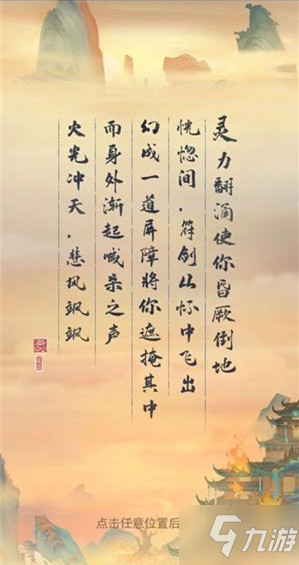 灵力翻涌使你昏厥倒地
恍惚间，符剑从怀中飞出
幻成一道屏障将你遮掩其中
而身外渐起喊杀之声
火光冲天，悲风飒飒
点击任意位置后
九游